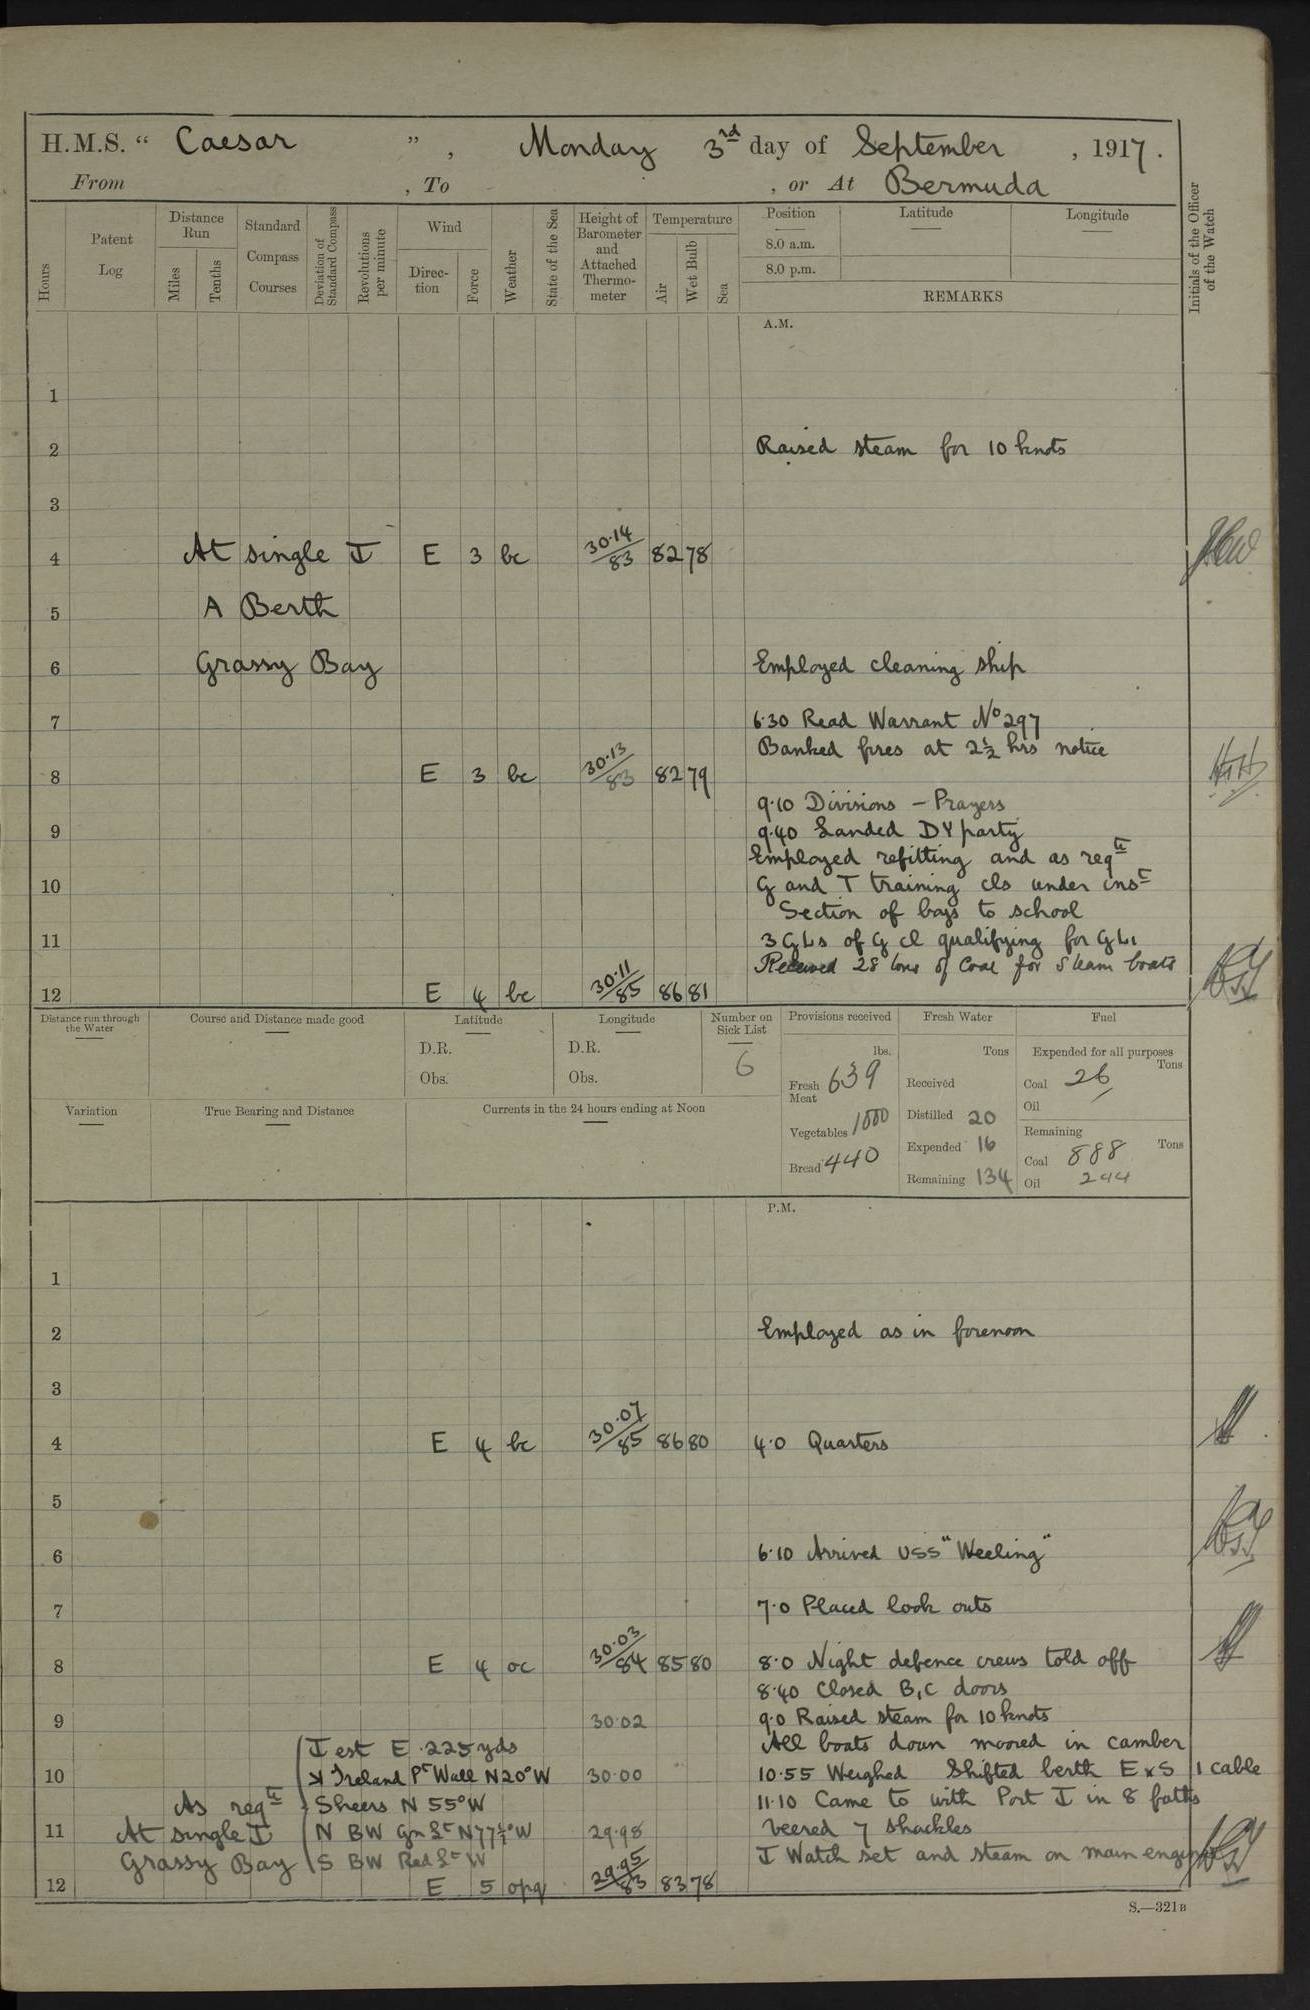 H.M.S. “ Caesar ” , Monday 3rd day of September , 1917.
From , To , or At Bermuda
Hours
Patent Log
Distance Run
Miles
Tenths
Standard Compass Courses
Deviation of Standard Compass
Revolutions per minute
Wind
Direction
Force
Weather
State of the Sea
Height of Barometer and Attached Thermometer
Temperature
Air
Wet Bulb
Sea
Position
8.0 a.m.
8.0 p.m.
Latitude
Longitude
REMARKS
Initials of the Officer of the Watch
A.M.
1
2 Raised steam for 10 knots
3
4 At single ⚓ E 3 bc 30.14/83 82 78
5 A Berth
6 Grassy Bay Employed cleaning ship
7 6.30 Read Warrant No 297
Banked fires at 2½ hrs notice
8 E 3 bc 30.13/83 82 79
9.10 Divisions – Prayers
9 9.40 Landed DY party
Employed refitting and as reqte
10 G and T training cls under inst
Section of boys to school
11 3 GLs of G cl qualifying for GL1
Received 28 tons of Coal for Steam boats
12 E 4 bc 30.11/85 86 81
Distance run through the Water
Course and Distance made good
Latitude
D.R.
Obs.
Longitude
D.R.
Obs.
Number on Sick List
6
Provisions received
lbs.
Fresh Meat 639
Vegetables 1000
Bread 440
Fresh Water
Tons
Received
Distilled 20
Expended 16
Remaining 134
Fuel
Expended for all purposes
Tons
Coal 26
Oil
Remaining
Tons
Coal 888
Oil 244
Variation
True Bearing and Distance
Currents in the 24 hours ending at Noon
P.M.
1
2 Employed as in forenoon
3
4 E 4 bc 30.07/85 86 80 4.0 Quarters
5
6 6.10 Arrived USS "Weeling"
7 7.0 Placed look outs
8 E 4 oc 30.03/84 85 80 8.0 Night defence crews told off
8.40 Closed B,C doors
9 30.02 9.0 Raised steam for 10 knots
⚓ est E .225 yds All boats down moored in camber
10 Ireland Pt Wall N20°W 30.00 10.55 Weighed Shifted berth E x S 1 cable
As reqte Sheers N 55°W 11.10 Came to with Port ⚓ in 8 faths
11 At single ⚓ N BW Gn Lt N77½°W 29.98 veered 7 shackles
Grassy Bay S BW Red Lt W ⚓ Watch set and steam on main engines
12 E 5 opq 29.95/83 83 78
S.—321B